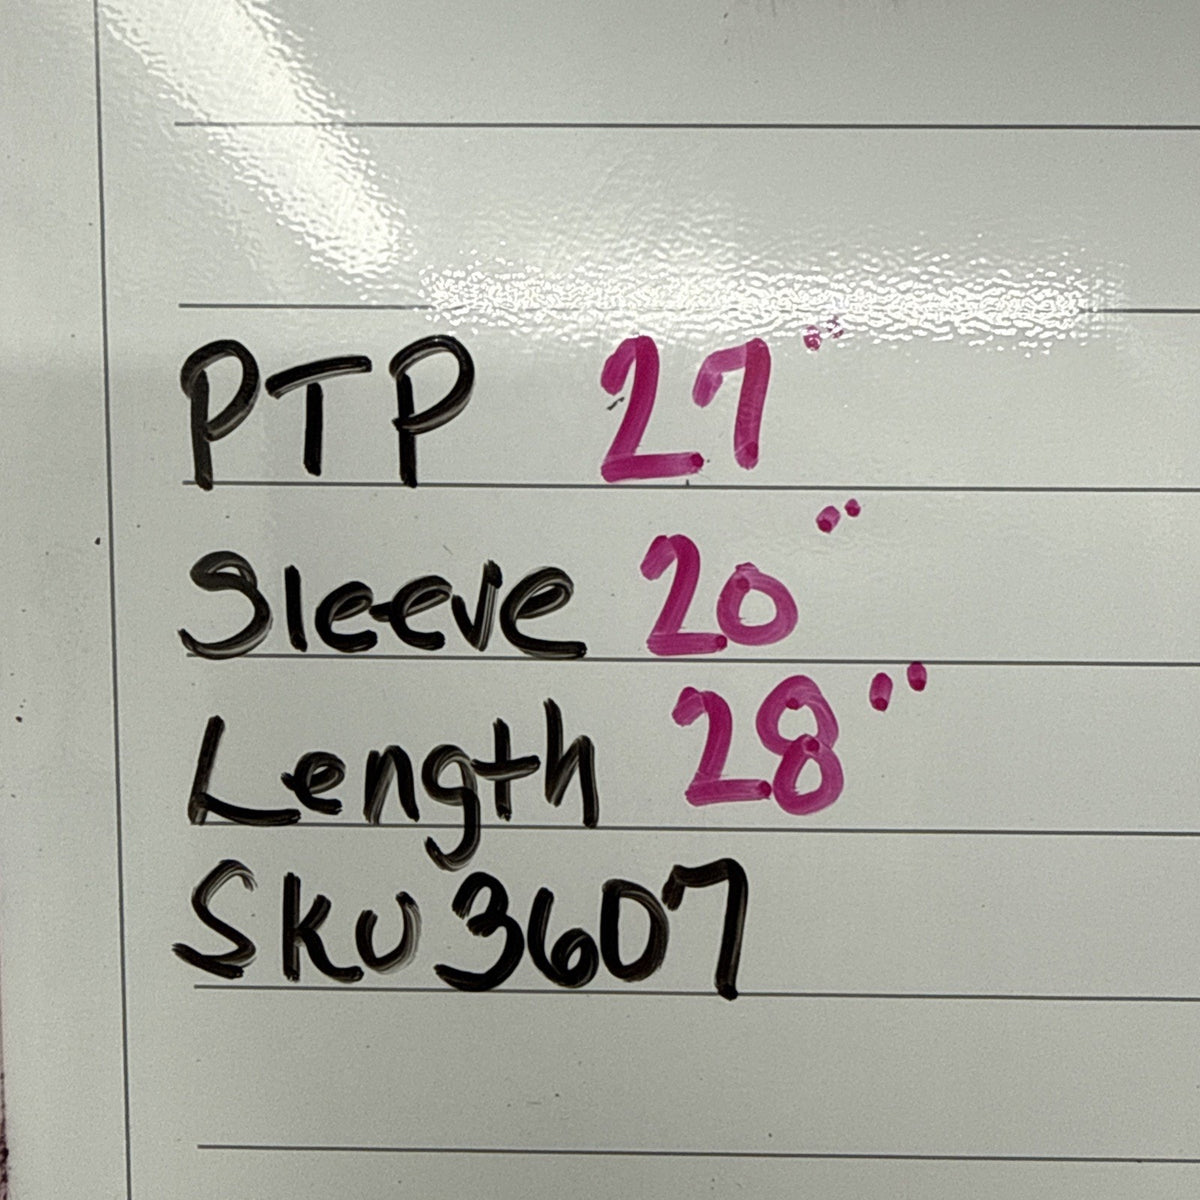 PTP 27"
Sleeve 20"
Length 28"
SKU 3607